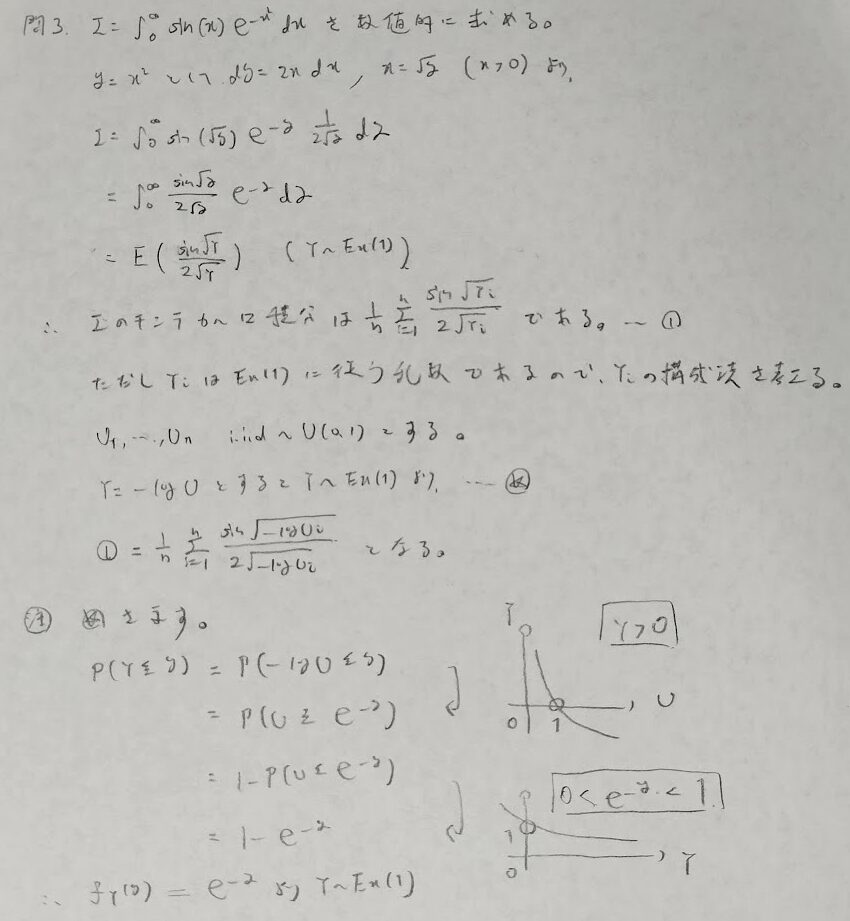 問3. I = ∫₀^∞ sin(x) e^{-x²} dx を数値的に求める。
y = x² として dy = 2x dx, x = √y (x>0) より,
I = ∫₀^∞ sin(√y) e^{-y} 1/(2√y) dy
= ∫₀^∞ sin√y/(2√y) e^{-y} dy
= E( sin√Y/(2√Y) ) (Y ~ Ex(1))
∴ Iのモンテカルロ積分は 1/n Σ_{i=1}^n sin√Yi/(2√Yi) である。… ①
ただし Yi は Ex(1) に従う乱数であるので、Yi の構成法を考える。
U₁, …, Un i.i.d ~ U(0,1) とする。
Y = -log U とすると Y ~ Ex(1) より, … ㊟
① = 1/n Σ_{i=1}^n sin√(-log Ui)/(2√(-log Ui)) となる。
を示す。
P(Y ≤ y) = P(-log U ≤ y)
= P(U ≥ e^{-y})
= 1 - P(U ≤ e^{-y})
= 1 - e^{-y}
∴ f_Y(y) = e^{-y} より Y ~ Ex(1)
Y
Y > 0
0 1 U
0 < e^{-y} < 1
1
0 Y